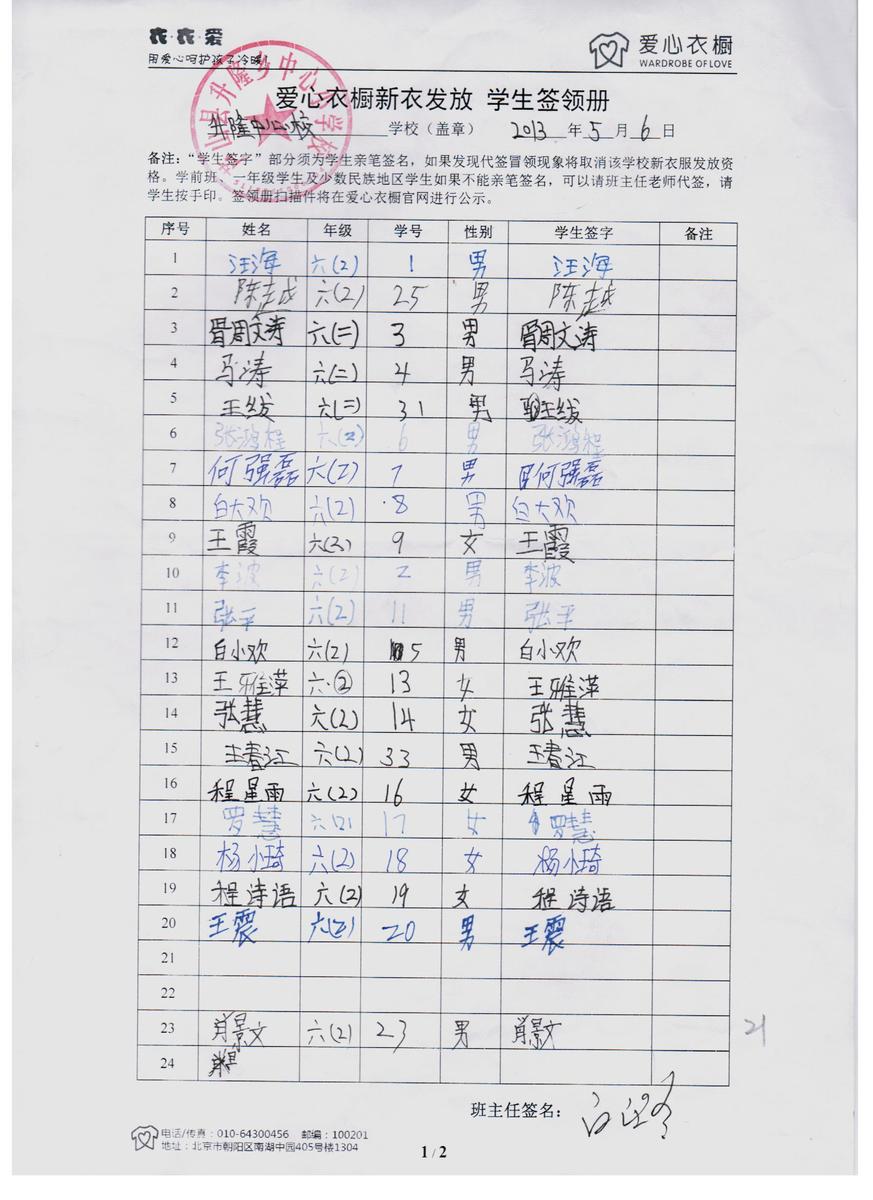 衣·衣·爱
用爱心呵护孩子冷暖!
爱心衣橱
WARDROBE OF LOVE
爱心衣橱新衣发放 学生签领册
升隆中心校 学校（盖章） 2013 年 5 月 6 日
备注：“学生签字”部分须为学生亲笔签名，如果发现代签冒领现象将取消该学校新衣服发放资
格。学前班、一年级学生及少数民族地区学生如果不能亲笔签名，可以请班主任老师代签，请
学生按手印。签领册扫描件将在爱心衣橱官网进行公示。
序号 姓名 年级 学号 性别 学生签字 备注
1 汪海 六(2) 1 男 汪海
2 陈志成 六(2) 25 男 陈志成
3 周文涛 六(二) 3 男 周文涛
4 马涛 六(二) 4 男 马涛
5 王线 六(二) 31 男 王线
6 张鸿程 六(2) 6 男 张鸿程
7 何强磊 六(2) 7 男 何强磊
8 白大欢 六(2) 8 男 白大欢
9 王霞 六(2) 9 女 王霞
10 李波 六(2) 2 男 李波
11 张平 六(2) 11 男 张平
12 白小欢 六(2) 5 男 白小欢
13 王雅萍 六(2) 13 女 王雅萍
14 张慧 六(2) 14 女 张慧
15 王春江 六(2) 33 男 王春江
16 程星雨 六(2) 16 女 程星雨
17 罗慧 六(2) 17 女 罗慧
18 杨小琦 六(2) 18 女 杨小琦
19 程诗语 六(2) 19 女 程诗语
20 王震 六(2) 20 男 王震
21
22
23 肖景文 六(2) 23 男 肖景文
24
21
班主任签名：
电话/传真：010-64300456 邮编：100201
地址：北京市朝阳区南湖中园405号楼1304
1 / 2